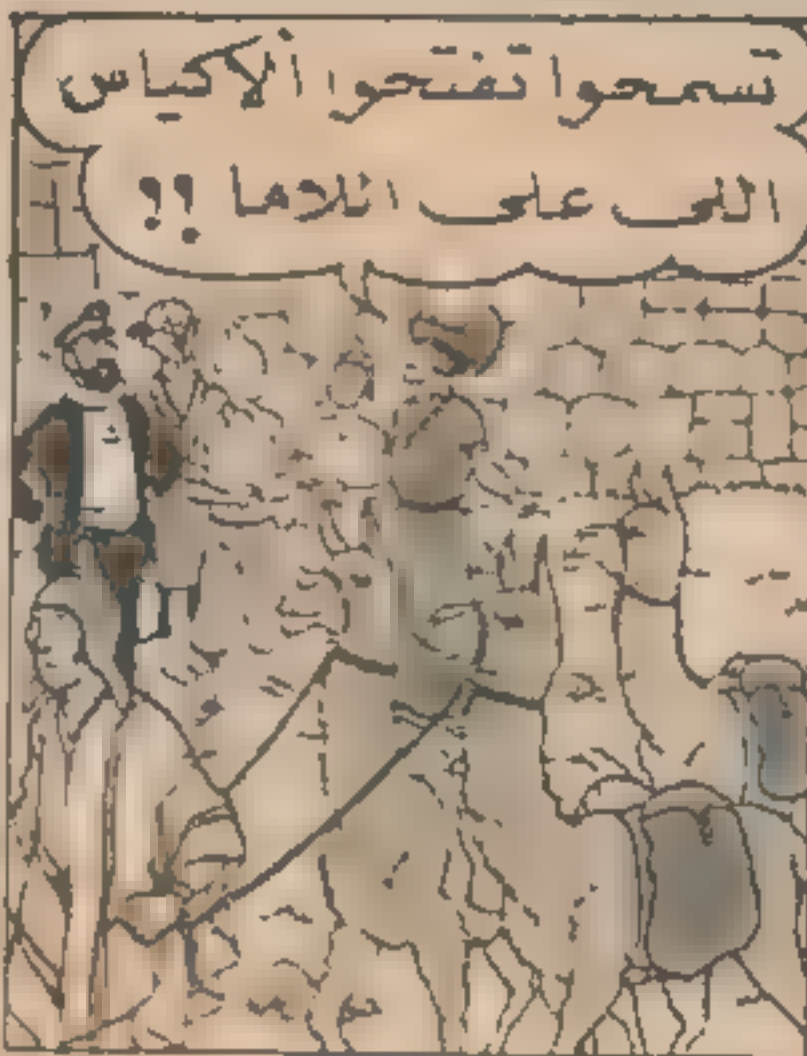 تسمحوا تفتحوا ألاكياس
اللى على اللاما !!